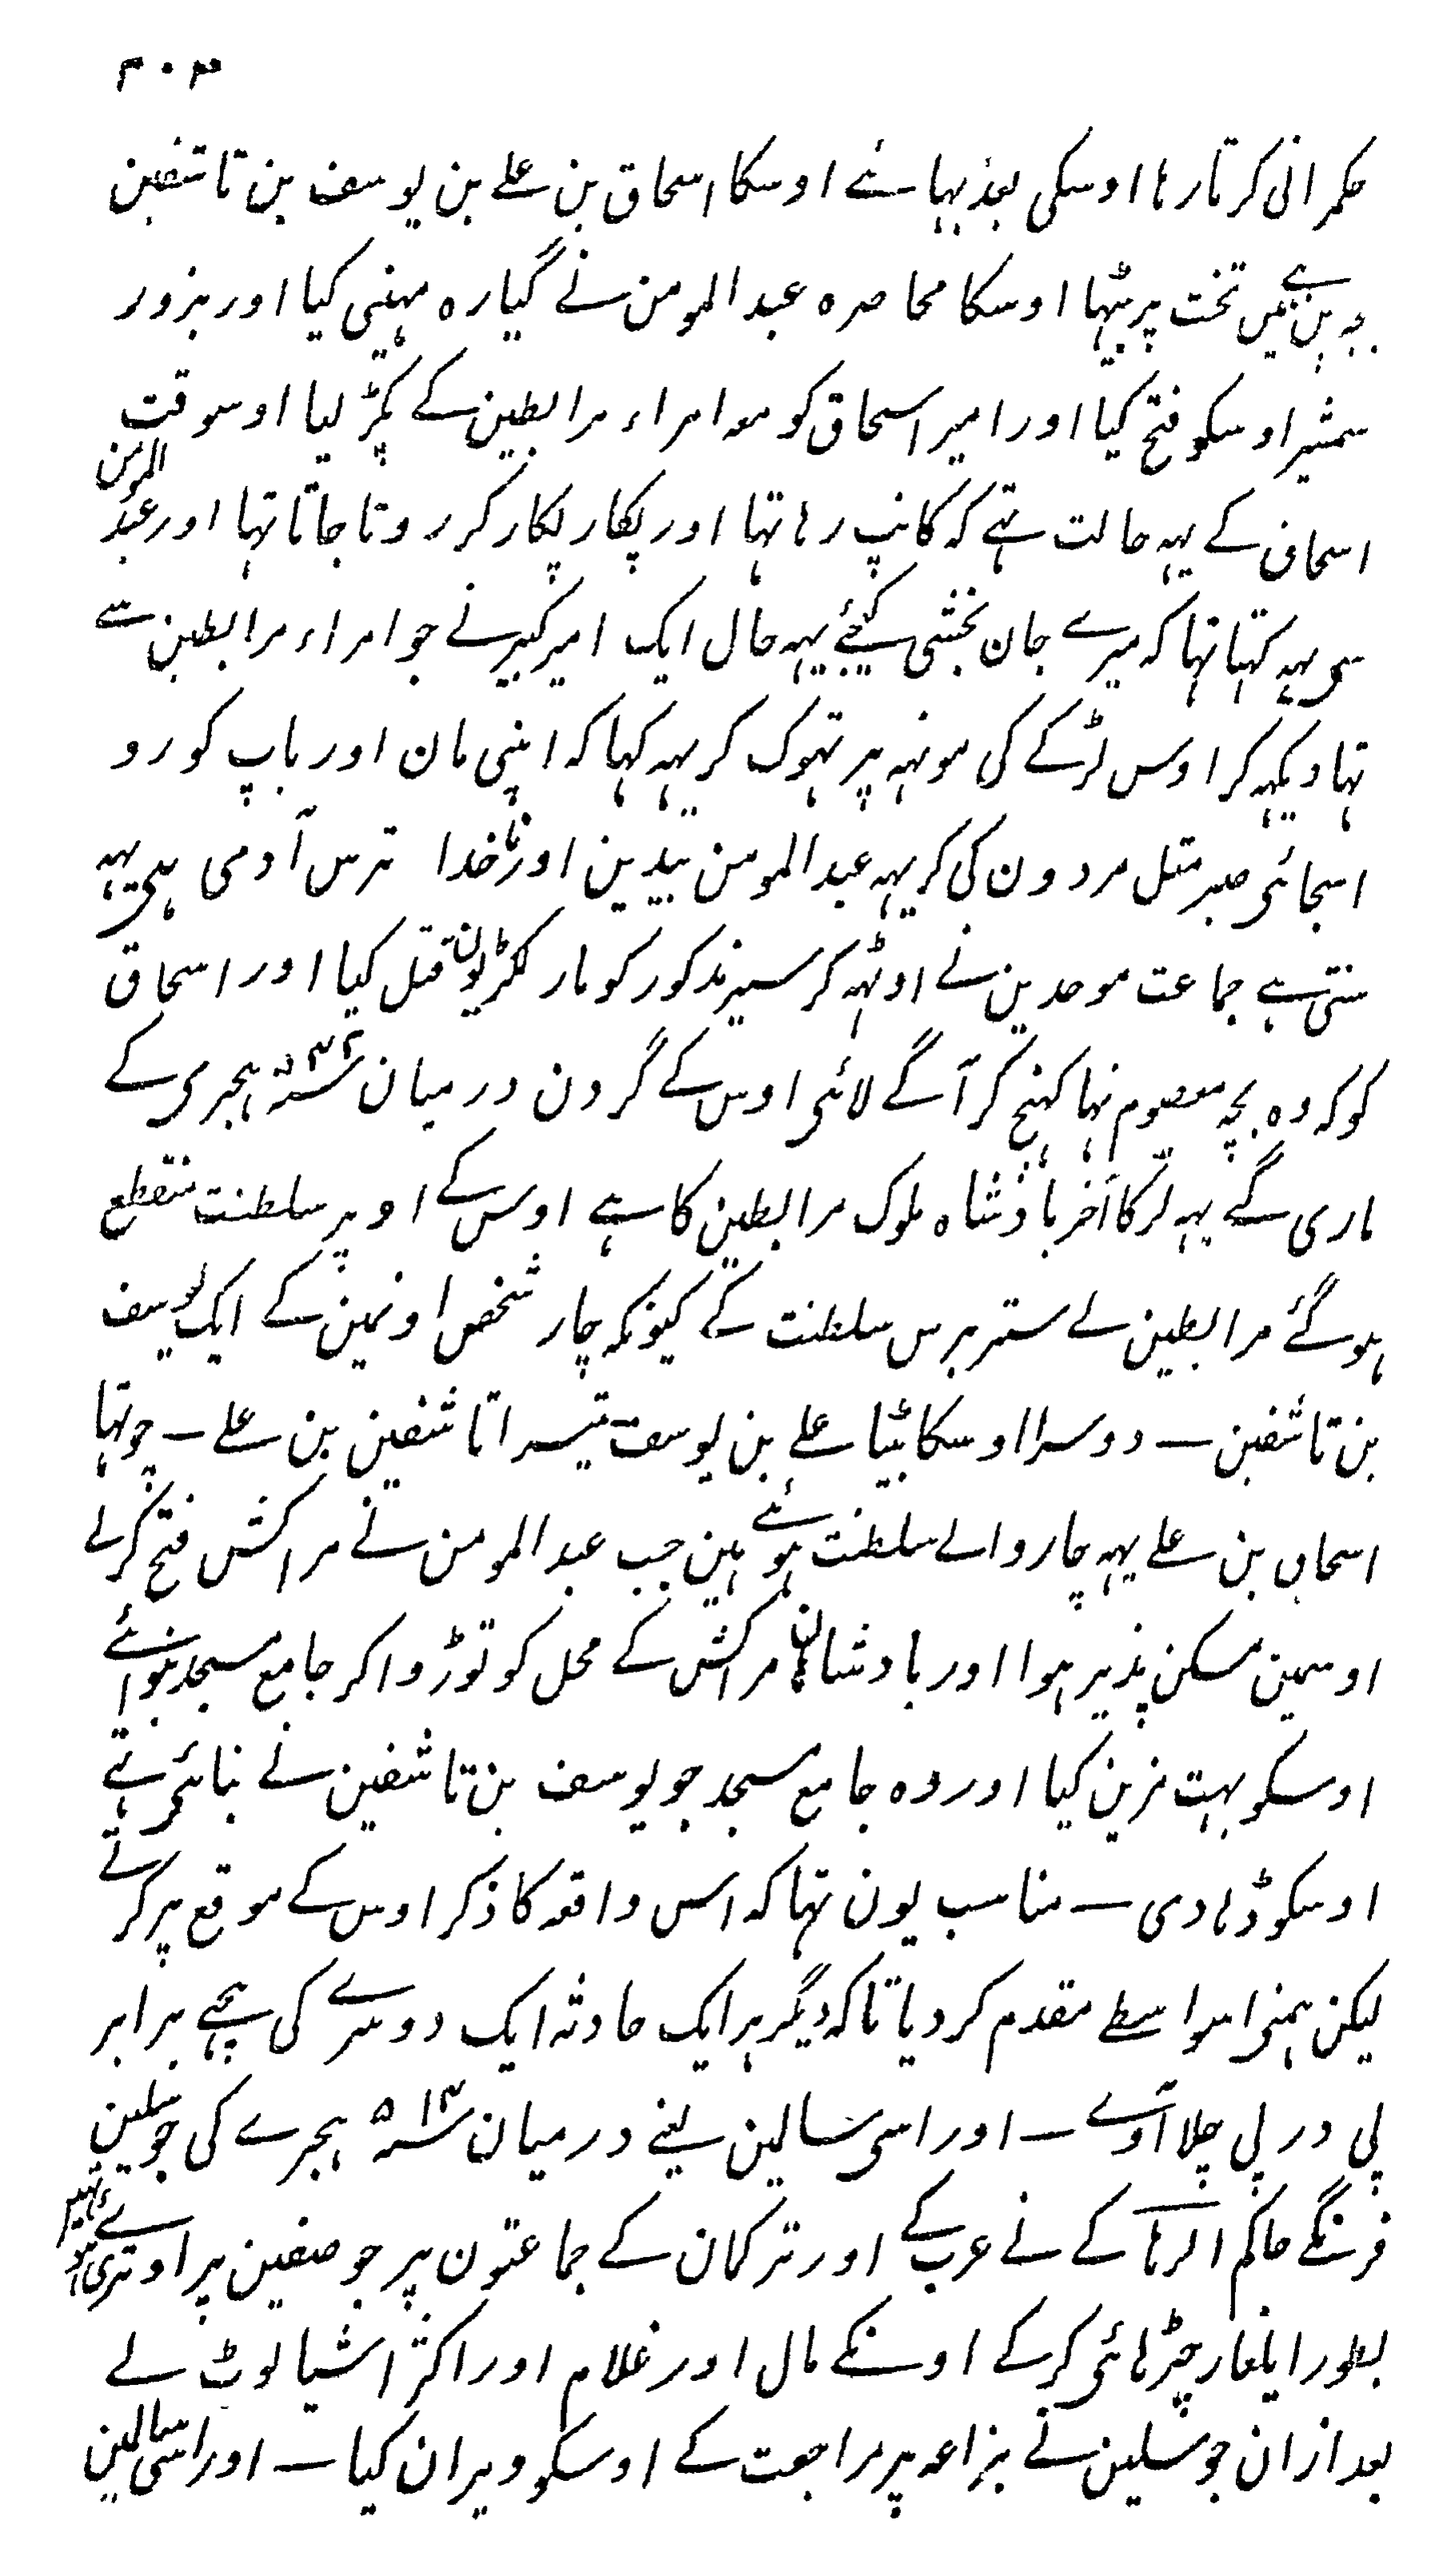 ۳۰۳
حکمرانی کرتا رہا اوسکی بعد بہائے اوسکا اسحاق بن علے بن یوسف بن تاشفین
بچہ پن ہے مین تخت پر بیٹہا اوسکا محاصرہ عبد المومن نے گیارہ مہینی کیا اور بزور
سمشیر اوسکو فتح کیا اور امیر اسحاق کو معہ امراء مرابطین کے پکڑ لیا اوسوقت
اسحاق کے یہہ حالت تہے کہ کانپ رہا تہا اور پکار پکار کر روتا جاتا تہا اور عبد المومن
سی یہہ کہتا تہا کہ میرے جان بخشی کیجئے یہہ حال ایک امیر کبیر نے جو امراء مرابطین سے
تہا دیکہہ کر اوس لڑکے کی مونہہ پر تہوک کر یہہ کہا کہ اپنی مان اور باپ کو رو
اسجائی صبر مثل مردون کی کر یہہ عبد المومن بیدین اور ناخدا ترس آدمی ہی یہہ
سنتی ہے جماعت موحدین نے اوٹہہ کر سیر مذکور کو مار لکڑیون قتل کیا اور اسحاق
کو کہ وہ بچہ معصوم تہا کہنچ کر آگے لائی اوس کے گردن درمیان سنہ ۵۴۲ ہجری کے
ماری گے یہہ لڑکا آخر بادشاہ ملوک مرابطین کا ہے اوس کے اوپر سلطنت منقطع
ہو گئے مرابطین نے ستر برس سلطنت کے کیونکہ چار شخص اونمین کے ایک یوسف
بن تاشفین ۔ دوسرا اوسکا بیٹا علے بن یوسف تیسرا تاشفین بن علے ۔ چوتہا
اسحاق بن علے یہہ چار والے سلطنت ہوئے ہین جب عبد المومن نے مراکش فتح کرلے
اوسمین مسکن پذیر ہوا اور بادشاہان مراکش کے محل کو توڑوا کر جامع مسجد بنوائے
اوسکو بہت مزین کیا اور وہ جامع مسجد جو یوسف بن تاشفین نے بنائی تہے
اوسکو ڈہا دی ۔ مناسب یون تہا کہ اس واقعہ کا ذکر اوس کے موقع پر کرتے
لیکن ہمنی اسواسطے مقدم کر دیا تاکہ دیگر ہر ایک حادثہ ایک دوسرے کی پیچہے برابر
پی در پی چلا آوے ۔ اور اسی سالمین یعنے درمیان سنہ ۵۱۳ ہجرے کی جوسلین
فرنگے حاکم الرہا کے نے عرب کے اور ترکمان کے جماعتون پر جو صفین پر اوتری ہوئے تہیں
بطور ایلغار چڑہائی کرکے اونکے مال اور غلام اور اکثر اشیا لوٹ لے
بعد ازان جوسلین نے بزاعہ پر مراجعت کے اوسکو ویران کیا ۔ اور اسی سالمین